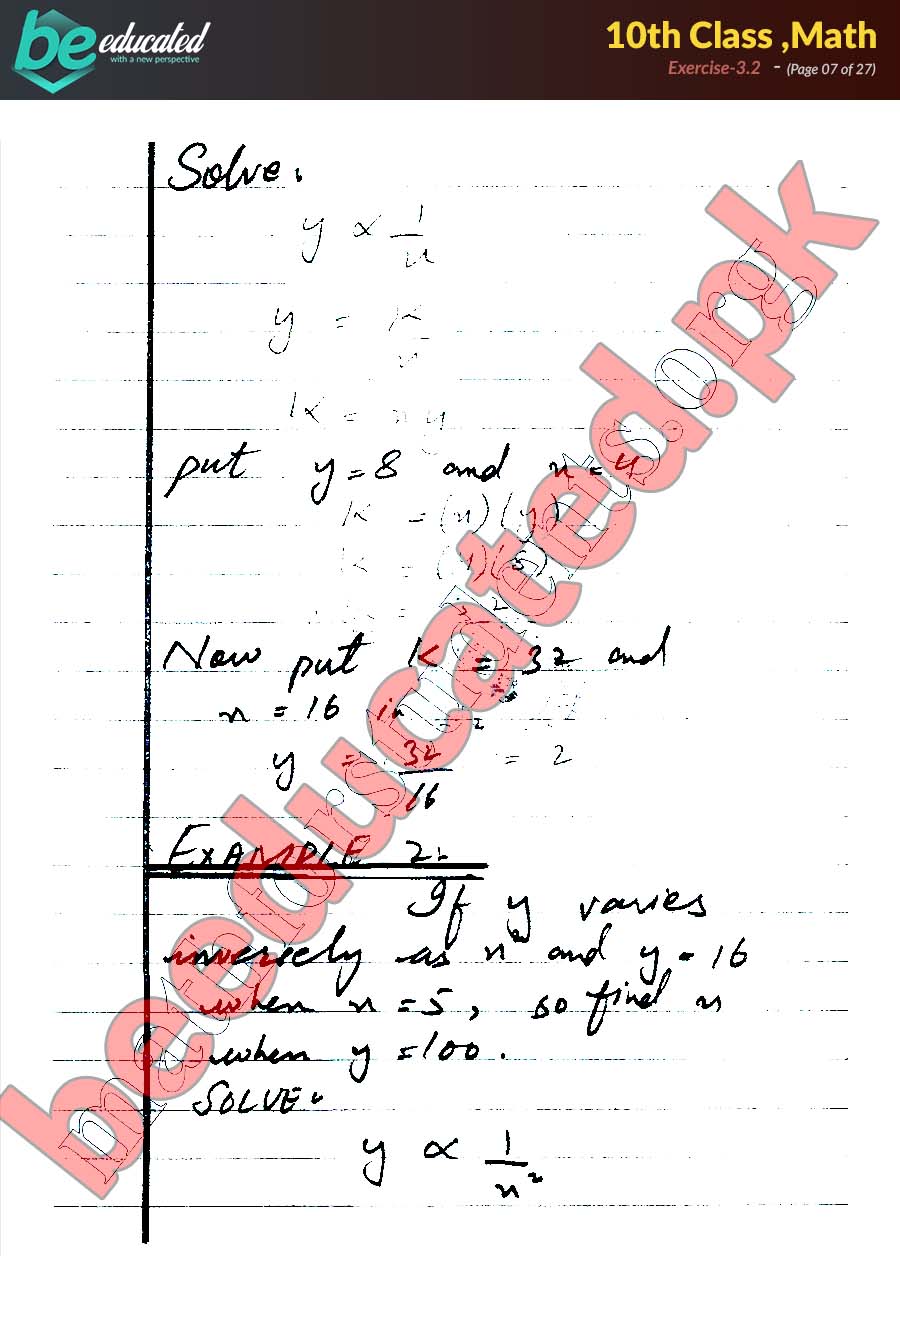 be educated
with a new perspective
10th Class ,Math
Exercise-3.2 - (Page 07 of 27)
Solve.
y ∝ 1/x
y = K/x
K = xy
put y=8 and x=4
K = (x)(y)
K = (4)(8)
K = 32
Now put K = 32 and
x = 16 in
y = 32/16 = 2
EXAMPLE 2:
If y varies
inversely as x² and y=16
when x=5, so find x
when y=100.
SOLVE.
y ∝ 1/x²
beeducated.pk